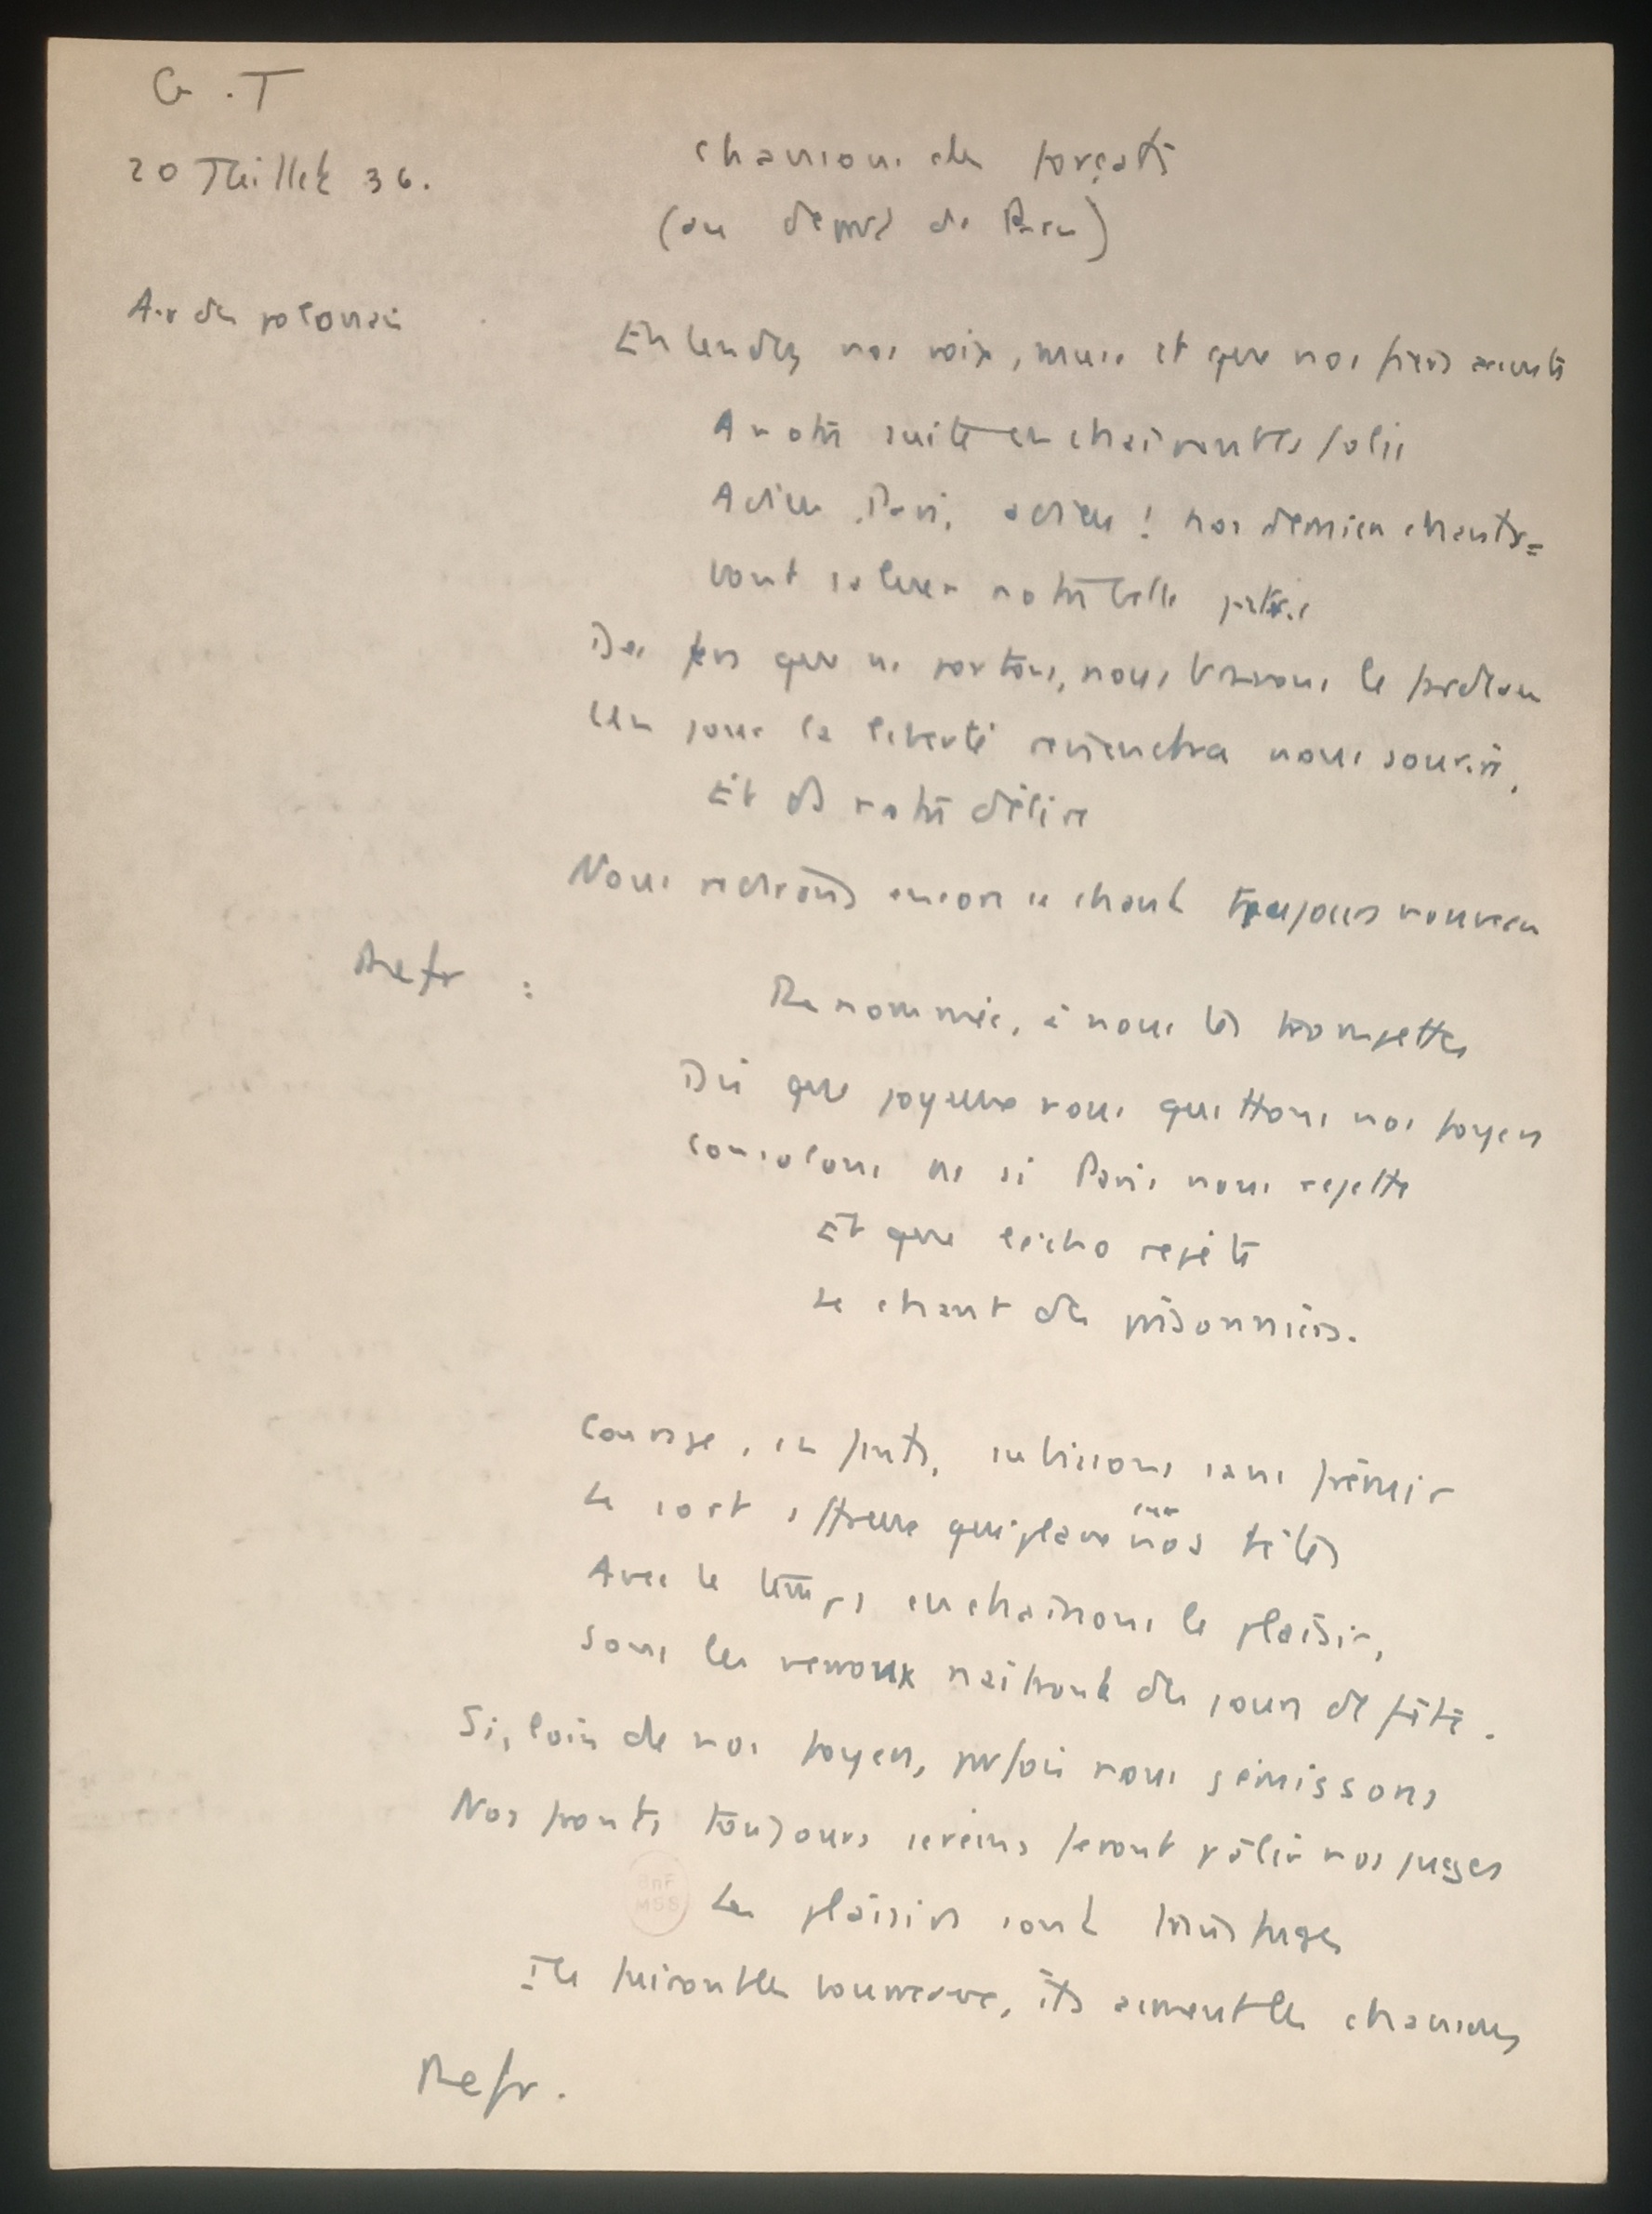 G.T
20 Juillet 36.
Chanson des forçats
(au départ de Paris)
Air des polonais
Entendez nos voix, et que nos fiers accents
A notre suite enchainent les folies
Adieu Paris, adieu ! nos derniers chants
vont saluer notre belle patrie
Des fers que ns portons, nous bravons le fardeau
Un jour la liberté reviendra nous sourire,
Et ds notre délire
Nous redirons encore ce chant toujours nouveau
Refr :
Renommée, à nous tes trompettes
Dis que joyeux nous quittons nos foyers
consolons ns si Paris nous rejette
Et que l'écho repète
Le chant des prisonniers.
Courage, subissons sans frémir
Le sort affreux qui plane sur nos têtes
Avec le temps enchainons le plaisir,
Sous les verroux naitront des jours de fête.
Si, loin de nos foyers, parfois nous gémissons
Nos fronts toujours sereins feront pâlir nos juges
BnF
MSS
Les plaisirs sont transfuges
Ils fuiront les ils aiment les chansons
Refr.